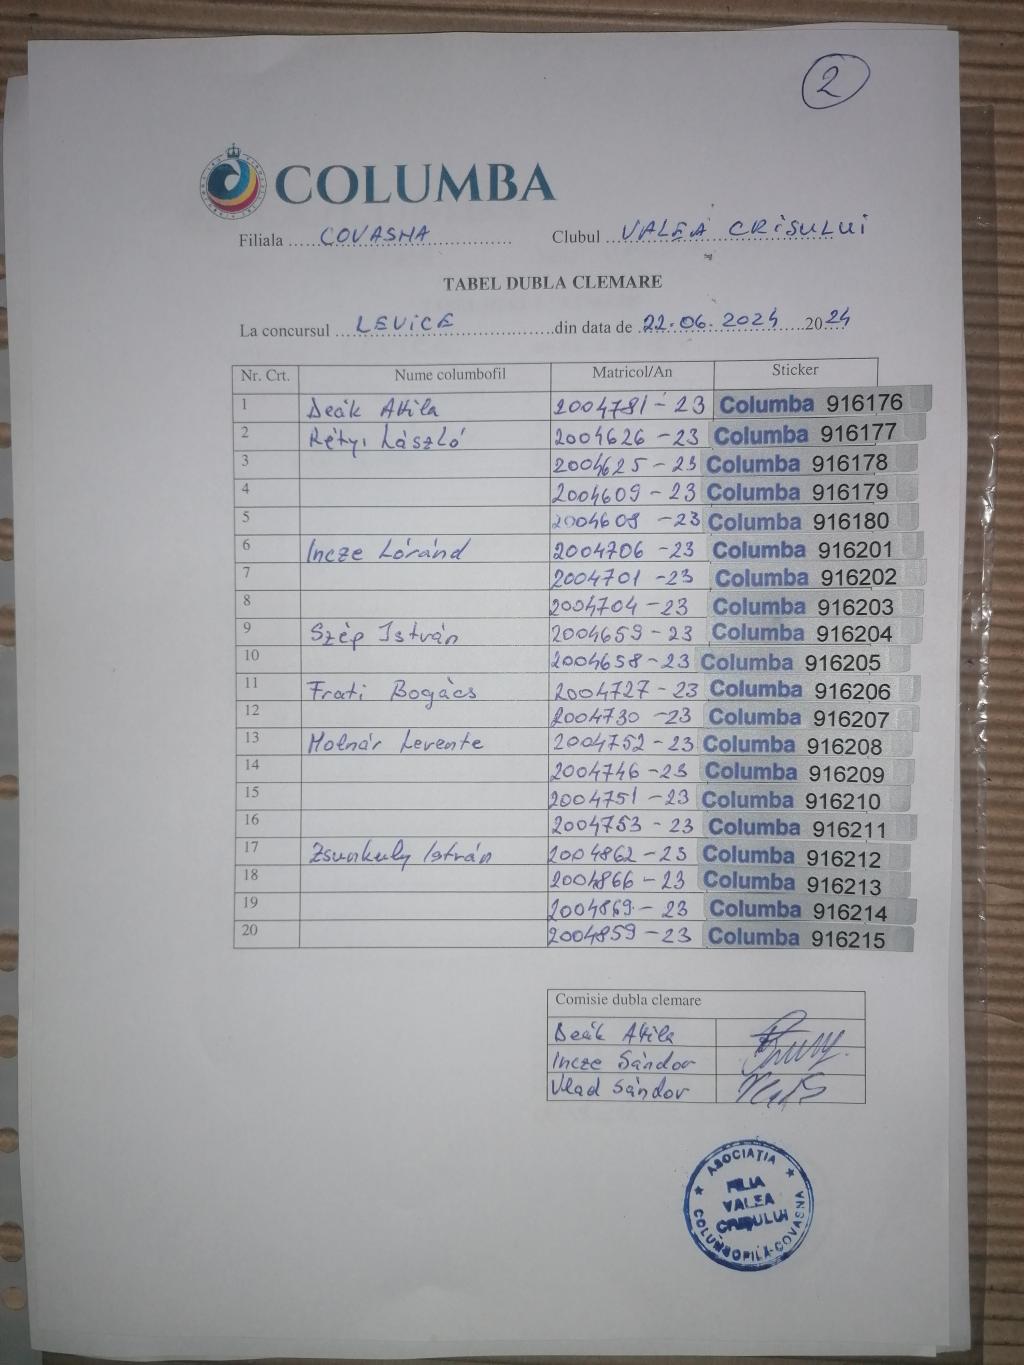 2
COLUMBA
Filiala ....COVASNA.................... Clubul ..VALEA CRISULUI
TABEL DUBLA CLEMARE
La concursul ....LEVICE.....................din data de .22.06.2024.....20.24
Nr. Crt. Nume columbofil Matricol/An Sticker
1 Deák Attila 2004781-23 Columba 916176
2 Rétyi László 2004626-23 Columba 916177
3 2004625-23 Columba 916178
4 2004609-23 Columba 916179
5 2004608-23 Columba 916180
6 Incze Lóránd 2004706-23 Columba 916201
7 2004701-23 Columba 916202
8 2004704-23 Columba 916203
9 Szép István 2004659-23 Columba 916204
10 2004658-23 Columba 916205
11 Frati Bogács 2004727-23 Columba 916206
12 2004730-23 Columba 916207
13 Molnár Levente 2004752-23 Columba 916208
14 2004746-23 Columba 916209
15 2004751-23 Columba 916210
16 2004753-23 Columba 916211
17 Zsunkuly István 2004862-23 Columba 916212
18 2004866-23 Columba 916213
19 2004869-23 Columba 916214
20 2004859-23 Columba 916215
Comisie dubla clemare
Deák Attila
Incze Sándor
Vlad Sándor
ASOCIAȚIA
FILIA
VALEA
CRIȘULUI
COLUMBOFILĂ-COVASNA